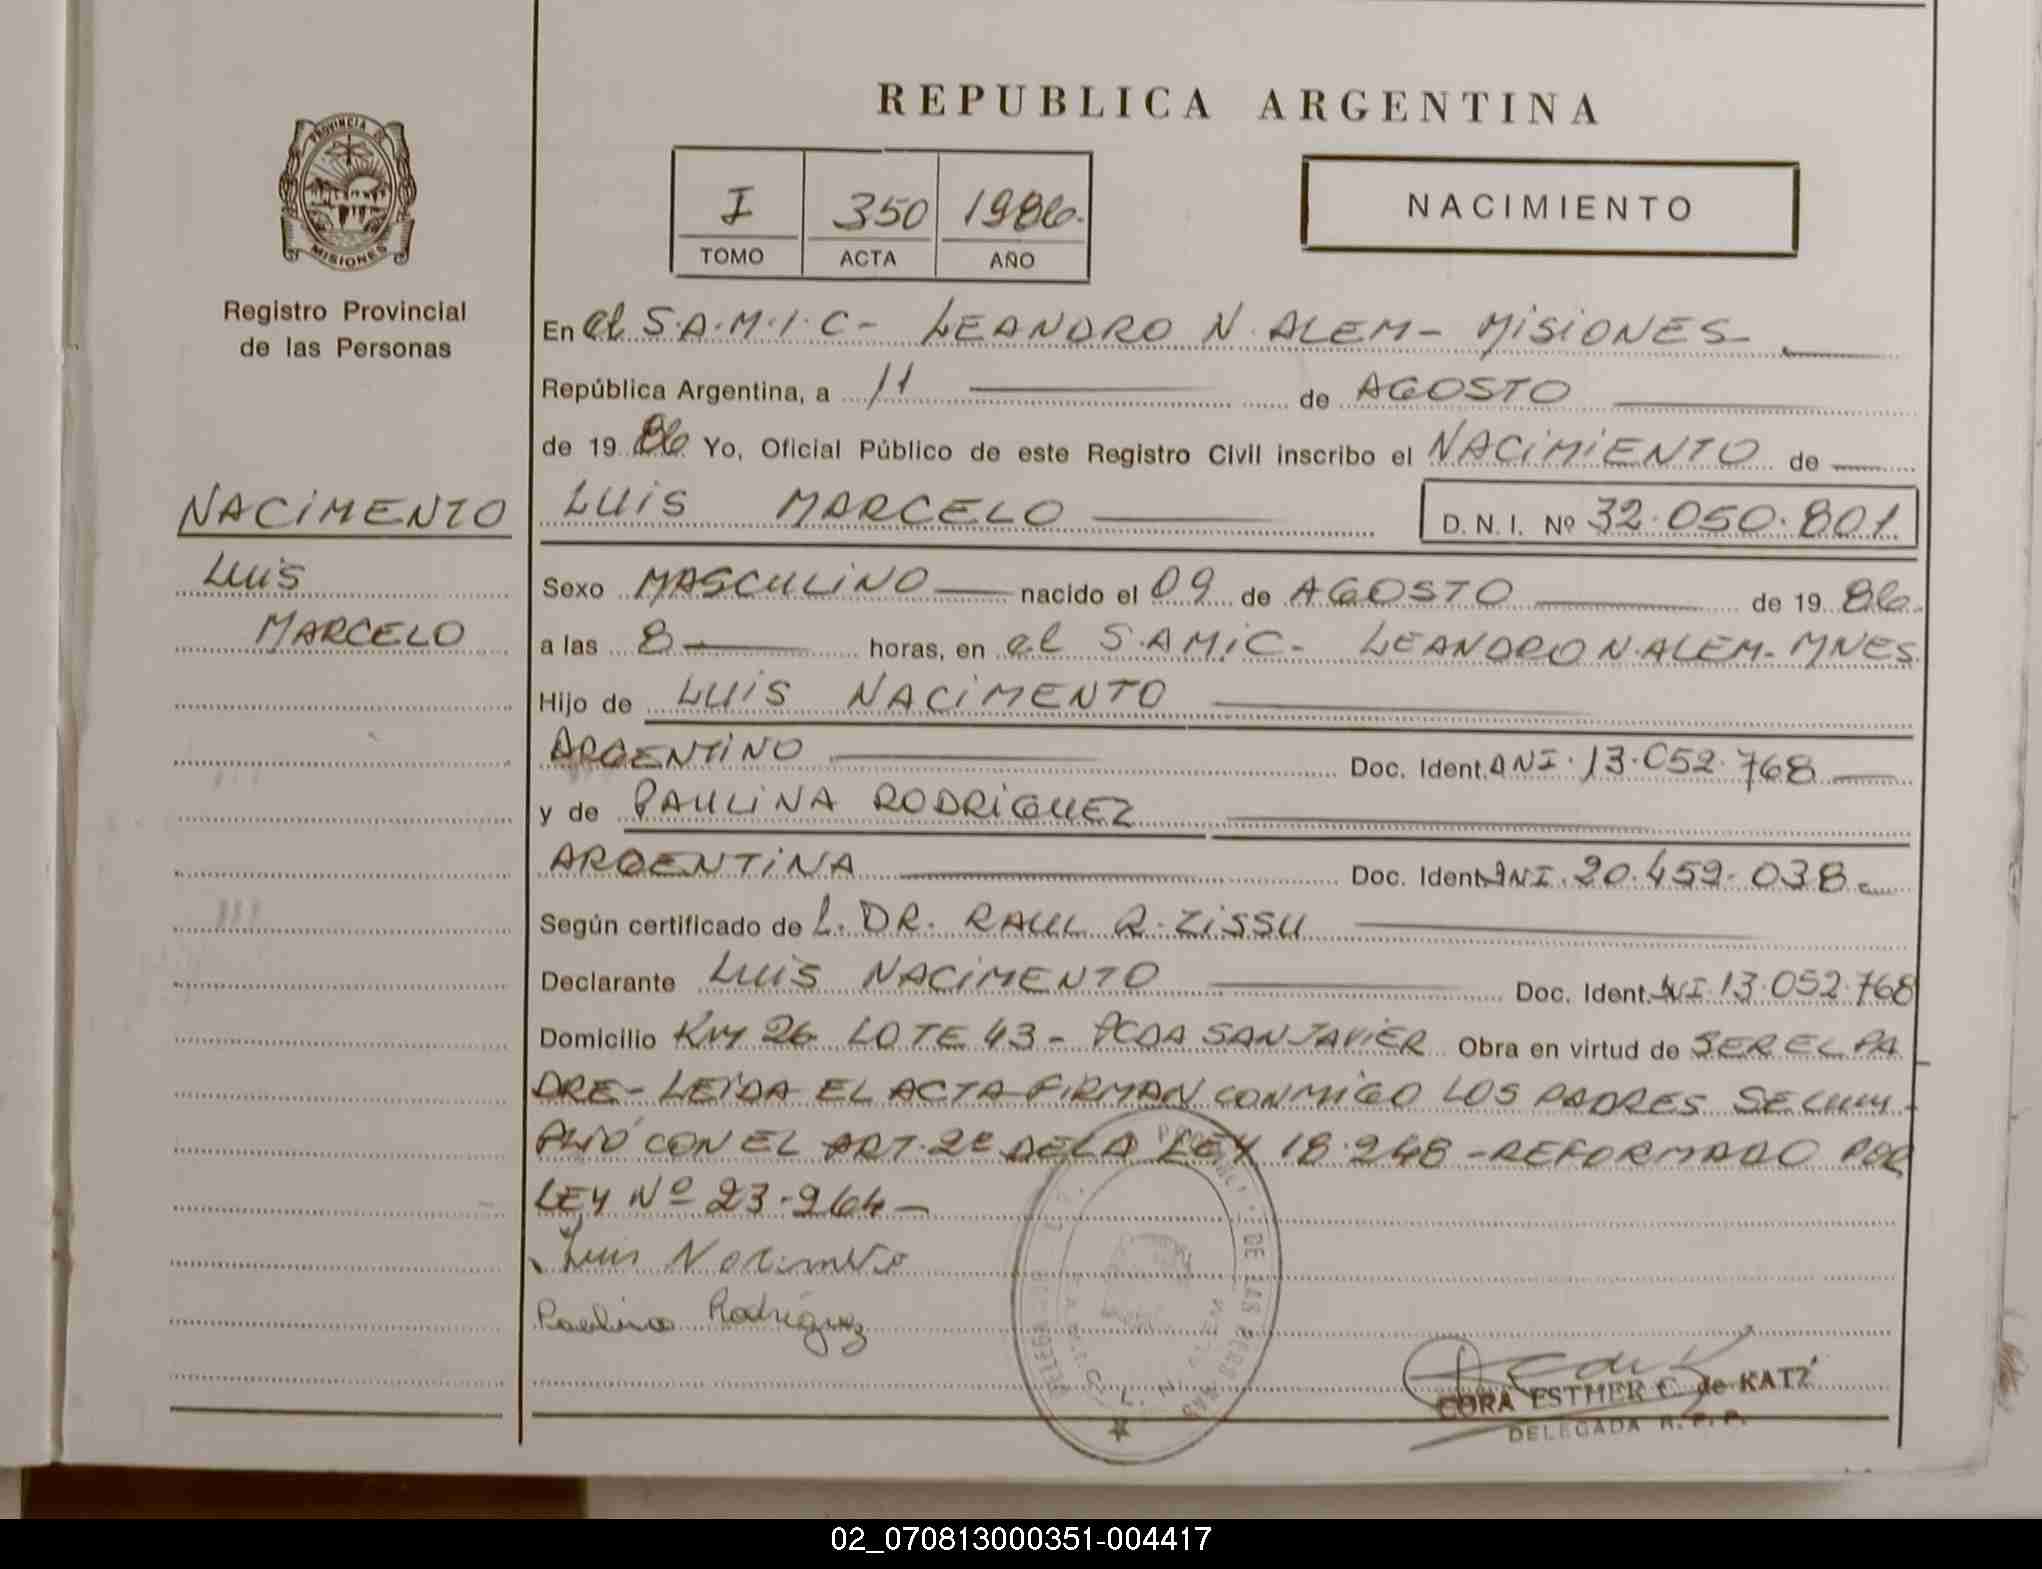 REPUBLICA ARGENTINA
PROVINCIA DE
MISIONES
Registro Provincial
de las Personas
I 350 1986.
TOMO ACTA AÑO
NACIMIENTO
En el S.A.M.I.C- LEANDRO N. ALEM- MISIONES-
República Argentina, a 11 de AGOSTO
de 19 86 Yo, Oficial Público de este Registro Civil inscribo el NACIMIENTO de
NACIMENTO
LUIS MARCELO D. N. I. Nº 32.050.801.
LUIS
MARCELO
Sexo MASCULINO nacido el 09 de AGOSTO de 19 86.
a las 8 horas, en el S.AMIC- LEANDRO N.ALEM- MNES
Hijo de LUIS NACIMENTO
ARGENTINO Doc. Ident. DNI. 13.052.768
y de PAULINA RODRIGUEZ
ARGENTINA Doc. Ident. DNI. 20.459.038.
Según certificado de L. DR. RAUL R. ZISSU
Declarante LUIS NACIMENTO Doc. Ident. DNI 13.052.768
Domicilio KM 26 LOTE 43- PCDA SAN JAVIER Obra en virtud de SER EL PA
DRE- LEIDA EL ACTA FIRMAN CONMIGO LOS PADRES SE CUM-
PLIÓ CON EL ART. 2º DE LA LEY 18.248 -REFORMADO POR
LEY Nº 23.264-
Luis Nacimento
Paulina Rodriguez
DE LAS PERSONAS
CORA ESTHER C. de KATZ
DELEGADA R. P. P.
02_070813000351-004417